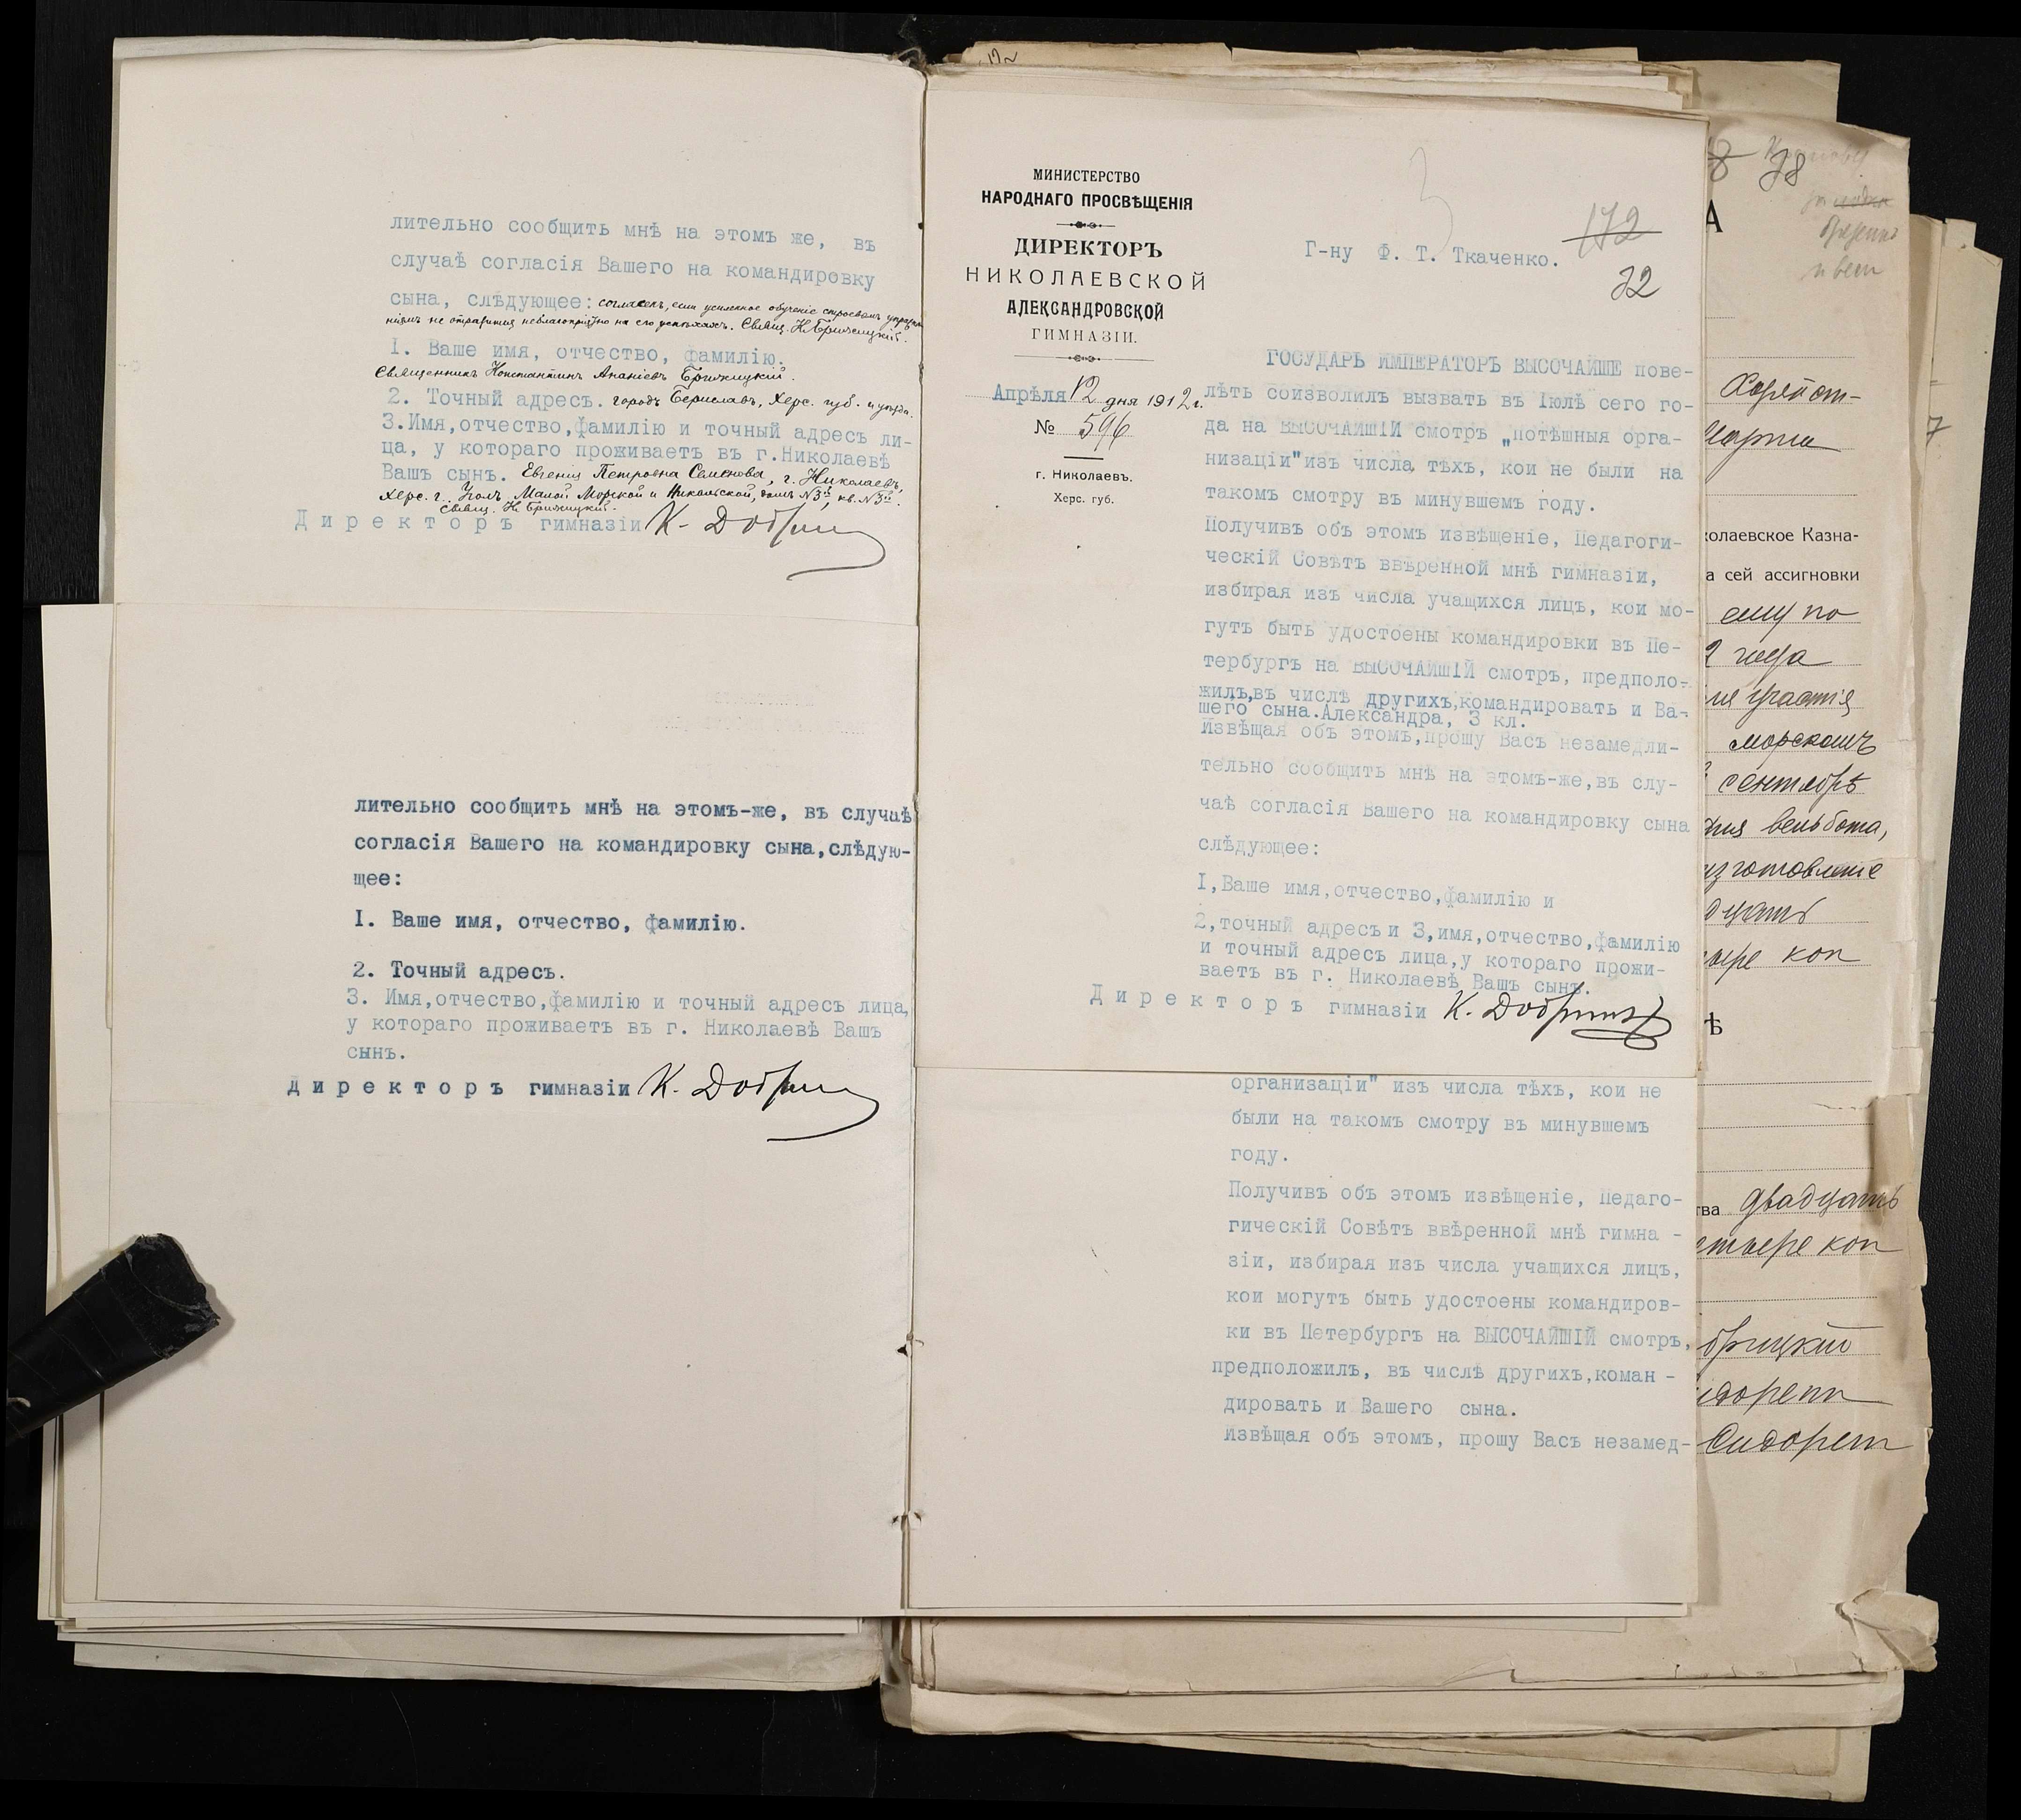 лительно сообщить мнѣ на этомъ же, въ
случаѣ согласія Вашего на командировку
сына, слѣдующее: согласенъ, если усиленное обученіе строевымъ упражне
ніямъ не отразится неблагопріятно на его успѣхахъ. Свящ. К. Брижицкій.
I. Ваше имя, отчество, фамилію.
Священникъ Константинъ Ананіевъ Брижицкій.
2. Точный адресъ. городъ Бериславъ, Херс. губ. и уѣзда.
3.Имя,отчество,фамилію и точный адресъ ли-
ца, у котораго проживаетъ въ г.Николаевѣ
Вашъ сынъ. Евгенія Петровна Семенова, г. Николаевъ,
Херс. г. Уголъ Малой Морской и Никольской, домъ №3й, кв. №3й.
Свящ. К. Брижицкій.
Директоръ гимназіи К. Добр
лительно сообщить мнѣ на этомъ-же, въ случаѣ
согласія Вашего на командировку сына,слѣдую-
щее:
I. Ваше имя, отчество, фамилію.
2. Точный адресъ.
3. Имя,отчество,фамилію и точный адресъ лица,
у котораго проживаетъ въ г. Николаевѣ Вашъ
сынъ.
Директоръ гимназіи К. Добр
МИНИСТЕРСТВО
НАРОДНАГО ПРОСВѢЩЕНІЯ
ДИРЕКТОРЪ
НИКОЛАЕВСКОЙ
АЛЕКСАНДРОВСКОЙ
ГИМНАЗІИ.
Апрѣля 12 дня 1912 г.
№ 596
г. Николаевъ.
Херс. губ.
3
172
32
Г-ну Ф. Т. Ткаченко.
ГОСУДАРЬ ИМПЕРАТОРЪ ВЫСОЧАЙШЕ пове-
лѣть соизволилъ вызвать въ Іюлѣ сего го-
да на ВЫСОЧАЙШІЙ смотръ „потѣшныя орга-
низаціи"изъ числа тѣхъ, кои не были на
такомъ смотру въ минувшемъ году.
Получивъ объ этомъ извѣщеніе, Педагоги-
ческій Совѣтъ ввѣренной мнѣ гимназіи,
избирая изъ числа учащихся лицъ, кои мо-
гутъ быть удостоены командировки въ Пе-
тербургъ на ВЫСОЧАЙШІЙ смотръ, предполо-
жилъ,въ числѣ другихъ,командировать и Ва-
шего сына.Александра, 3 кл.
Извѣщая объ этомъ,прошу Васъ незамедли-
тельно сообщить мнѣ на этомъ-же,въ слу-
чаѣ согласія Вашего на командировку сына
слѣдующее:
I,Ваше имя,отчество,фамилію и
2,точный адресъ и 3,имя,отчество,фамилію
и точный адресъ лица,у котораго прожи-
ваетъ въ г. Николаевѣ Вашъ сынъ.
Директоръ гимназіи К. Добр
организаціи" изъ числа тѣхъ, кои не
были на такомъ смотру въ минувшемъ
году.
Получивъ объ этомъ извѣщеніе, Педаго-
гическій Совѣтъ ввѣренной мнѣ гимна -
зіи, избирая изъ числа учащихся лицъ,
кои могутъ быть удостоены командиров-
ки въ Петербургъ на ВЫСОЧАЙШІЙ смотръ,
предположилъ, въ числѣ другихъ,коман -
дировать и Вашего сына.
Извѣщая объ этомъ, прошу Васъ незамед-
38
А
7
Марта
колаевское Казна-
а сей ассигновки
ему по
2 года
участія
морскомъ
сентябрѣ
вельбота,
изготовленіе
коп
ѣ
тва двадцать
коп